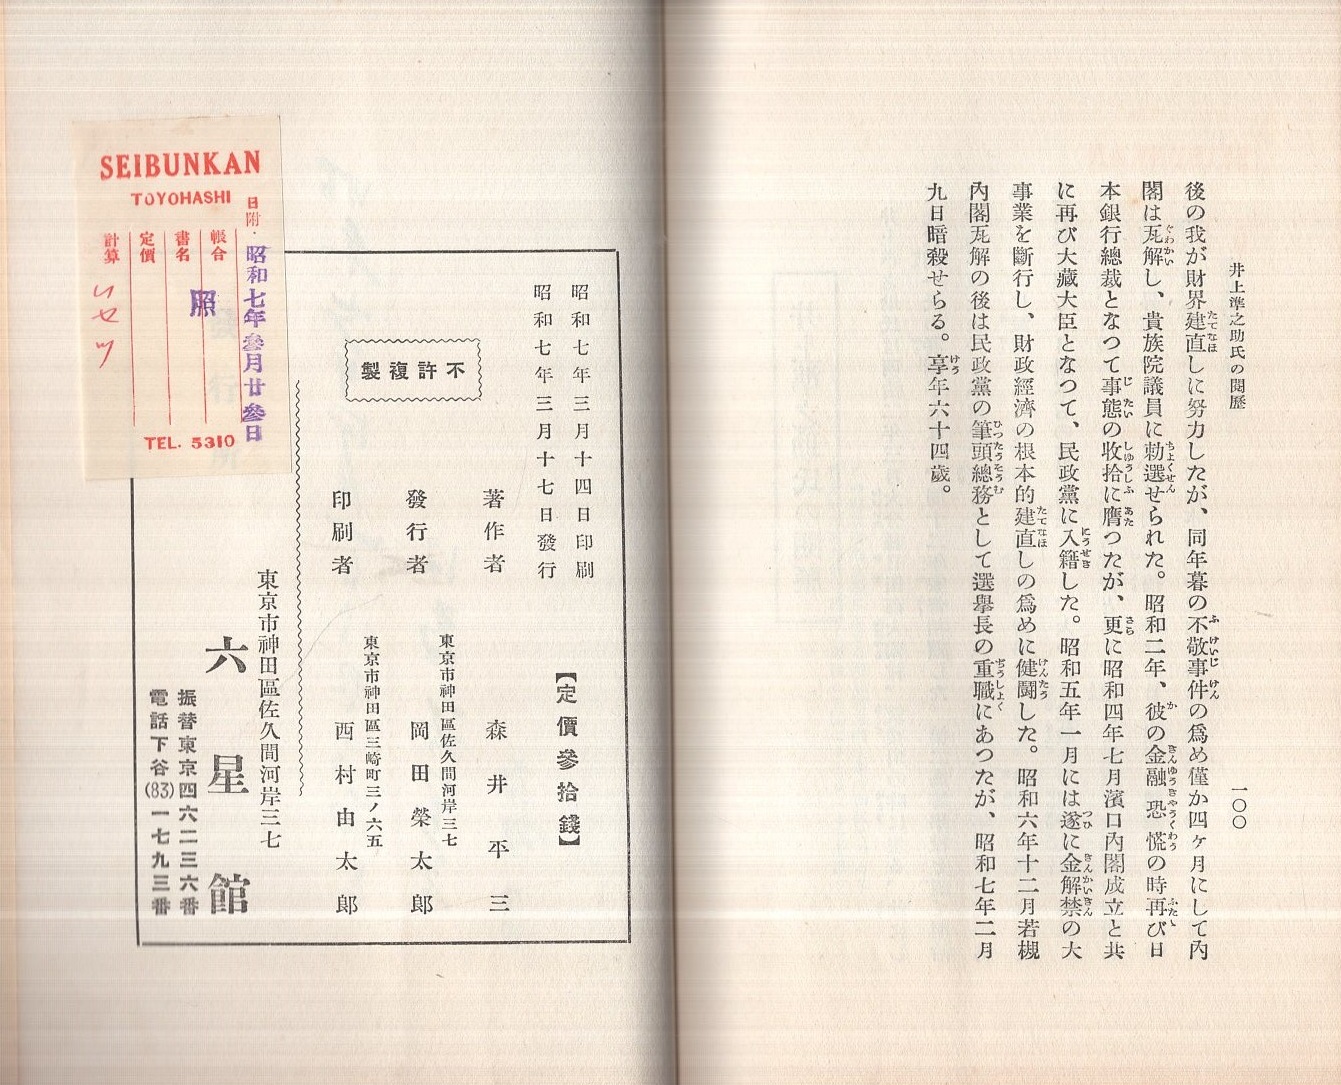 井上準之助氏の閱歷
一〇〇
後の我が財界建直しに努力したが、同年暮の不敬事件の爲め僅か四ヶ月にして內
閣は瓦解し、貴族院議員に勅選せられた。昭和二年、彼の金融恐慌の時再び日
本銀行總裁となつて事態の收拾に膺つたが、更に昭和四年七月濱口內閣成立と共
に再び大藏大臣となつて、民政黨に入籍した。昭和五年一月には遂に金解禁の大
事業を斷行し、財政經濟の根本的建直しの爲めに健鬪した。昭和六年十二月若槻
內閣瓦解の後は民政黨の筆頭總務として選擧長の重職にあつたが、昭和七年二月
九日暗殺せらる。享年六十四歲。
昭和七年三月十四日印刷
昭和七年三月十七日發行
【定價參拾錢】
不許複製
著作者 森井平三
東京市神田區佐久間河岸三七
發行者 岡田榮太郎
東京市神田區三崎町三ノ六五
印刷者 西村由太郎
東京市神田區佐久間河岸三七
發行所 六星館
振替東京四六二三六番
電話下谷(83)一七九三番
SEIBUNKAN
TOYOHASHI
日附・昭和七年參月廿參日
帳合 照
書名
定價
計算
TEL. 5310